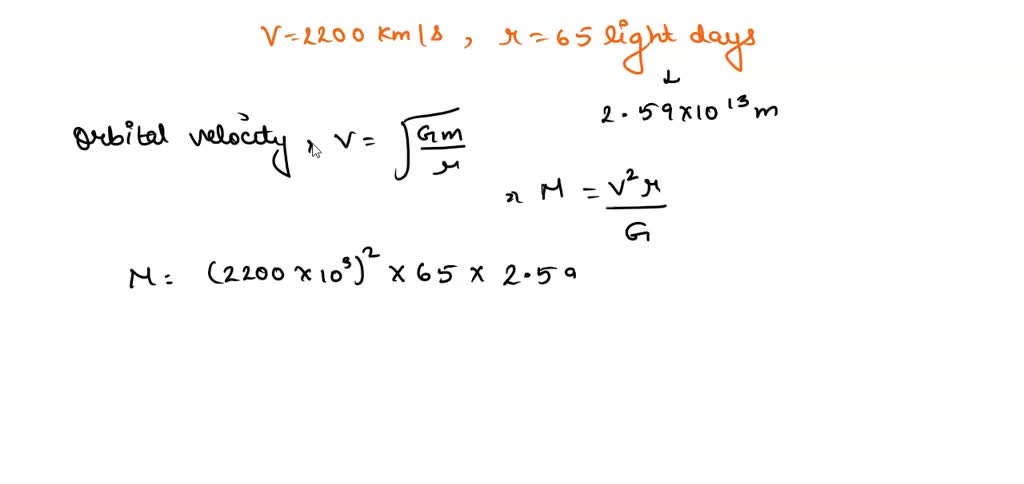 V=2200 km/s, r=65 light days
↓
2.59×10¹³m
Orbital velocity, V= √(Gm/r)
M = V²r/G
M= (2200×10³)²×65×2.59